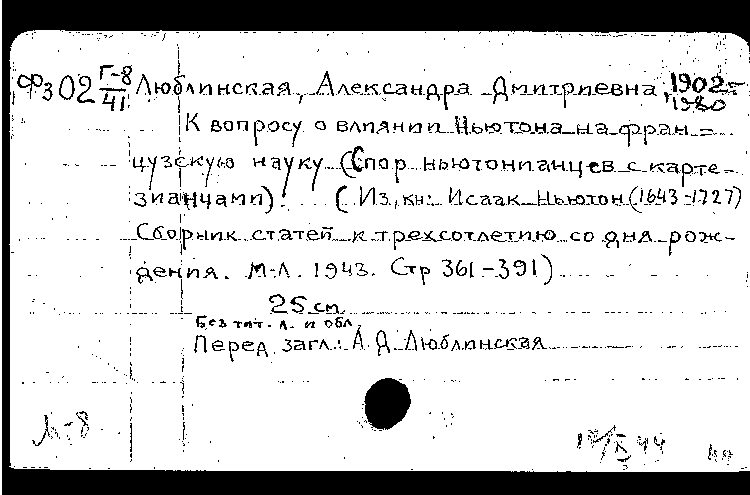 Фз 02 Г-8/41 Люблинская, Александра Дмитриевна, 1902-
1980
К вопросу о влиянии Ньютона на фран=
цузскую науку (Спор ньютонианцев с карте-
зианцами). (Из кн: Исаак Ньютон (1643-1727)
Сборник статей к трехсотлетию со дня рож-
дения. М-Л. 1943. Стр 361-391)
25 см
Без тит. л. и обл.
Перед загл: А.Д. Люблинская
44